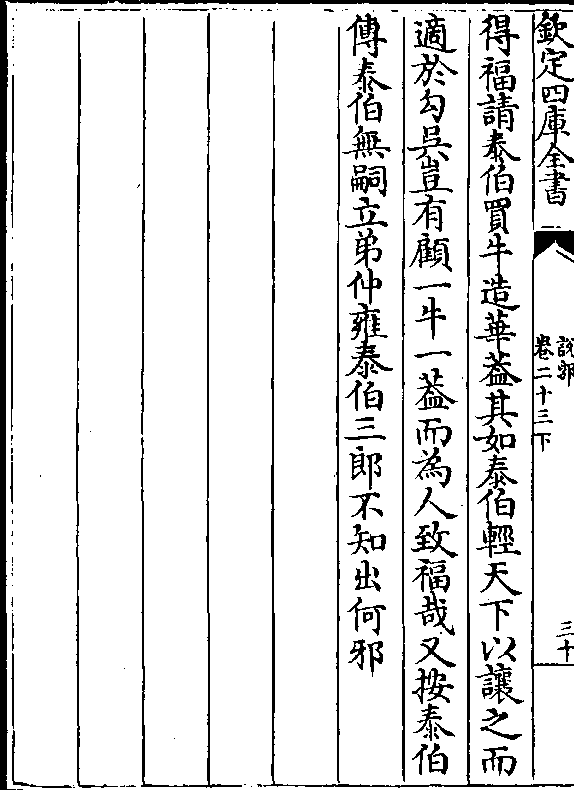 欽定四庫全書
說郛
卷二十三下
三十
得福請泰伯買牛造華葢其如泰伯輕天下以讓之而
適於勾吳豈有顧一牛一葢而為人致福哉又按泰伯
傳泰伯無嗣立弟仲雍泰伯三郎不知出何邪